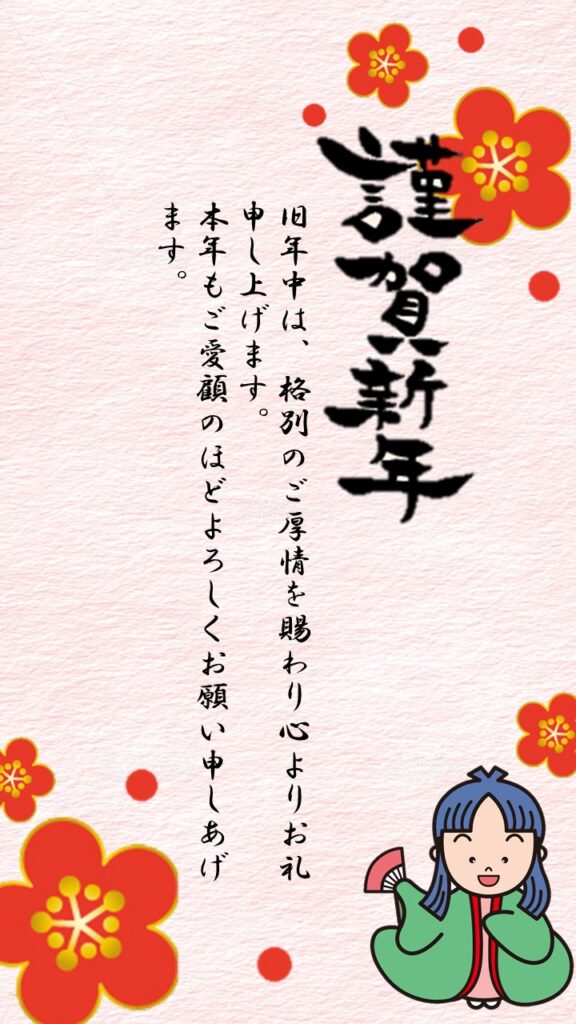 謹賀新年
旧年中は、格別のご厚情を賜わり心よりお礼
申し上げます。
本年もご愛顧のほどよろしくお願い申しあげ
ます。